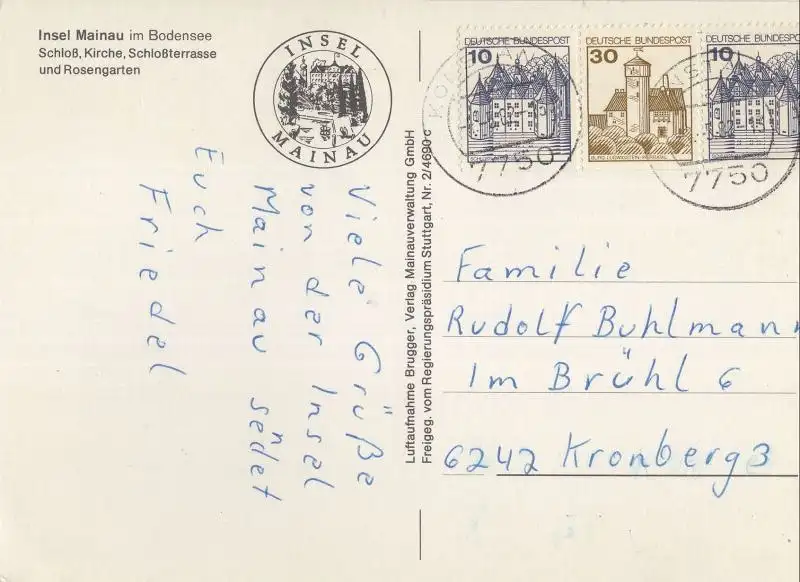 Insel Mainau im Bodensee
Schloß, Kirche, Schloßterrasse
und Rosengarten
INSEL
MAINAU
Viele Grüße
von der Insel
Mainau sendet
Euch
Friedel
Luftaufnahme Brugger, Verlag Mainauverwaltung GmbH
Freigeg. vom Regierungspräsidium Stuttgart, Nr. 2/4690 c
DEUTSCHE BUNDESPOST
10
DEUTSCHE BUNDESPOST
30
DEUTSCHE BUNDESPOST
10
7750
7750
Familie
Rudolf Buhlmann
Im Brühl 6
6242 Kronberg 3